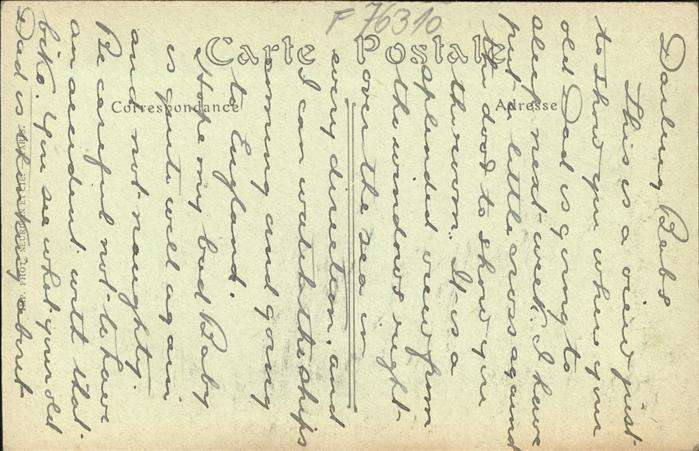 F 76310
Carte Postale
Correspondance
Adresse
Darling Babs
This is a view just
to show you where your
old Dad is going to
sleep next week. I have
put a little cross against
the door to show you
the room. It is a
splended view from
the windows right
over the sea in
every direction, and
I can watch the ships
coming and going
to England.
Hope my bad Baby
is quite well again
and not naughty.
Be careful not to have
an accident with that
bike. You see what your old
Dad is thinking about